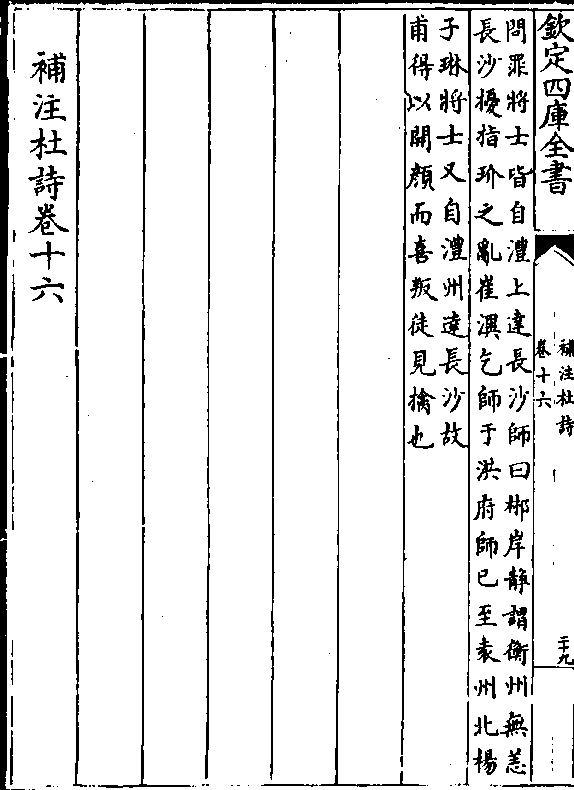 欽定四庫全書
補注杜詩
卷十六
二十九
問罪將士皆自澧上達長沙師曰郴岸靜謂衡州無恙
長沙擾指玠之亂崔渙乞師于洪府師已至袁州北楊
子琳將士又自澧州達長沙故
甫得以開顔而喜叛徒見擒也
補注杜詩卷十六